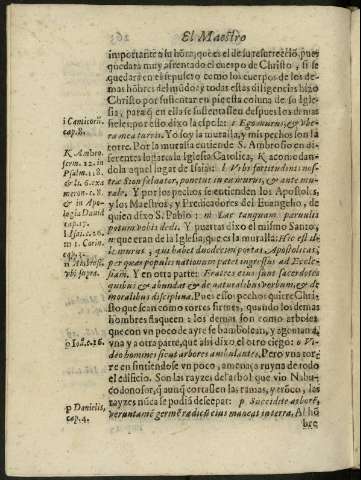 El Maestro
importante a su hōra, que es el de su resurrecciō, pues
quedara muy afrentado el cuerpo de Christo, si se
quedara en el sepulcro como los cuerpos de los de-
mas hōbres del mūdo: y todas estas diligencias hizo
Christo por sustentar en pie esta coluna de su Igle-
sia, para q̄ en ella se sustentassen despues los demas
fieles: por esto dixo la esposa: i Ego murus, & vbe-
ra mea turris. Yo soy la muralla, y mis pechos son la
torre. Por la muralla entiende S. Ambrosio en di-
ferentes lugares la Iglesia Catolica, K acomodan-
dola aquel lugar de Isaias: l Vrbs fortitudinis nos-
træ Sion saluator, ponetur in ea murus, & ante mu-
rale. Y por los pechos se entienden los Apostoles,
y los Maestros, y Predicadores del Euangelio, de
quien dixo S. Pablo: m Lac tanquam paruulis
potum vobis dedi. Y puertas dixo el mismo Santo,
n que eran de la Iglesia, que es la muralla: Hic est il-
le murus, qui habet duodecim portas Apostolicas,
per quas populis nationum patet ingressus ad Eccle-
siam. Y en otra parte: Fratres eius sunt sacerdotes
quibus & abundat & de naturalibus verbum, & de
moralibus disciplina. Pues estos pechos quiere Chri-
sto que sean como torres firmes, quando los demas
hombres flaqueen a los demas son como arboles
que con vn poco de ayre se bambolean, y agonizan a
vna y a otra parte, que assi dixo el otro ciego: o Vi-
deo homines sicut arbores ambulantes. Pero vna tor-
re en sintiendose vn poco, amenaça ruyna de todo
el edificio. Son las rayzes del arbol que vio Nabu-
codonosor, q̄ aunq̄ cortassen las ramas, y trōco, las
rayzes nūca se podiā desceparː p Succidite arborē,
veruntamē germē radicū eius maneat in terra. Al hō
bre
i Canticorū.
cap.8.
K Ambro.
serm. 22. in
Psalm. 118.
& li. 6. exa
meron. c. 8.
& in Apo-
logia Dauid
cap. 17.
l Isai. c. 26.
m 1. Corin.
cap. 3.
n Ambros.
vbi supra.
o Ioā. c. 16.
p Danielis,
cap. 4.